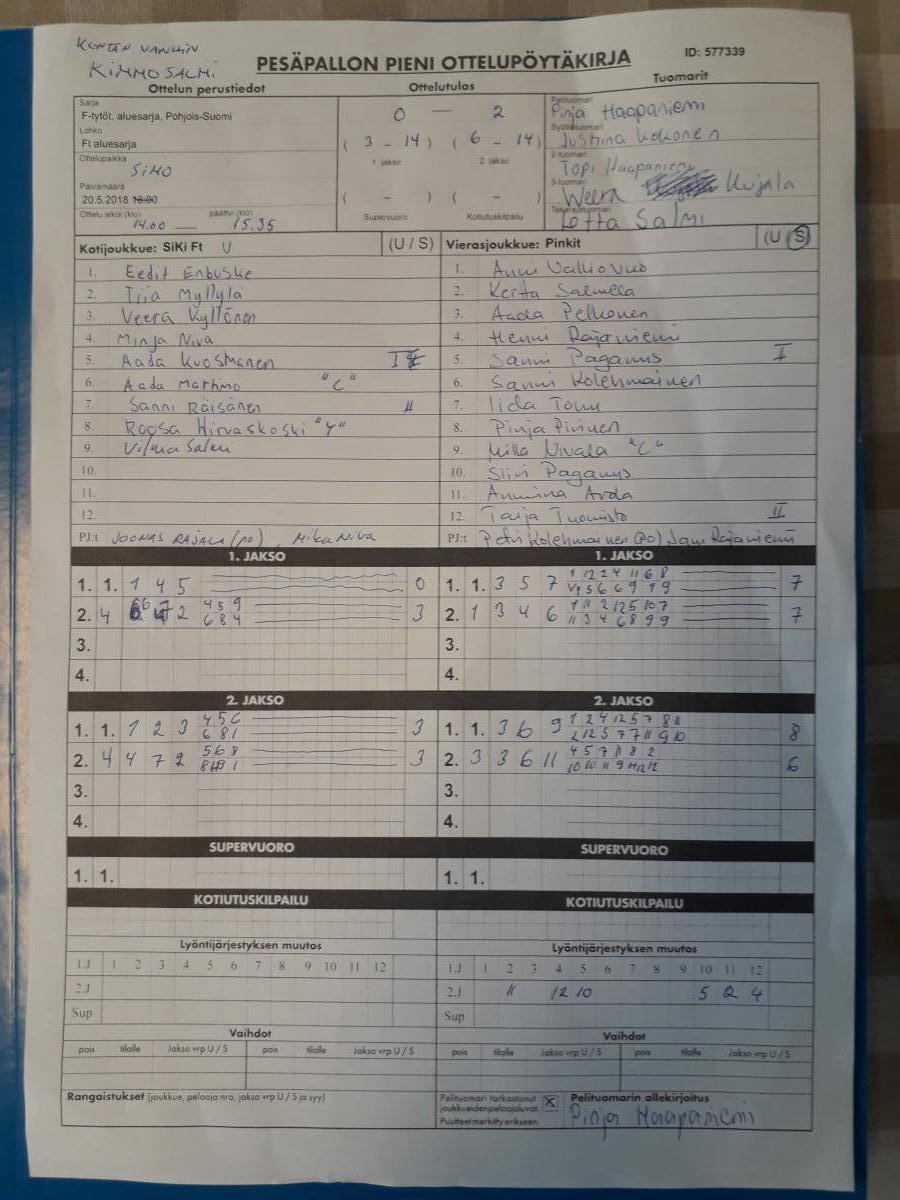 KENTÄN VANHIN
KIMMO SALMI
PESÄPALLON PIENI OTTELUPÖYTÄKIRJA
ID: 577339
Ottelun perustiedot
Ottelutulos
Tuomarit
Sarja
F-tytöt, aluesarja, Pohjois-Suomi
Lohko
Ft aluesarja
Ottelupaikka
SIMO
Päivämäärä
20.5.2018 18:00
Ottelu alkoi (klo) päättyi (klo)
14.00 — 15.35
0 — 2
( 3 - 14 ) ( 6 - 14 )
1 jakso 2. jakso
( - ) ( - )
Supervuoro Kotiutuskilpailu
Pelituomari
Pinja Haapaniemi
Syöttötuomari
Justiina Kokonen
2-tuomari
Topi Haapaniemi
3-tuomari
Weera Kujala
Takarajatuomari
Lotta Salmi
Kotijoukkue: SiKi Ft U (U / S)
1. Eedit Enbuske
2. Tiia Myllylä
3. Veera Kyllönen
4. Minja Niva
5. Aada Kuosmanen I
6. Aada Martimo "C"
7. Sanni Räisänen II
8. Roosa Hirvaskoski "Y"
9. Vilma Salmi
10.
11.
12.
PJ:t JOONAS RAJALA (PO), Mika Niva
Vierasjoukkue: Pinkit (U / S)
1. Anni Valliovuo
2. Kerta Salmela
3. Aada Pelkonen
4. Henni Rajaniemi
5. Sanni Paganus I
6. Sanni Kolehmainen
7. Iida Tohu
8. Pinja Pirinen
9. Milla Nivala "C"
10. Siiri Paganus
11. Anniina Arola
12. Taija Tuomisto II
PJ:t Petri Kolehmainen (PO) Jani Rajaniemi
1. JAKSO
1. 1. 1 4 5 0
2. 4 2 4 5 9 3
6 8 4
3.
4.
1. JAKSO
1. 1. 3 5 7 1 12 2 4 11 6 8 7
5 6 6 9 9
2. 1 3 4 6 1 11 2 12 5 10 7 7
11 3 4 6 8 9 9
3.
4.
2. JAKSO
1. 1. 1 2 3 4 5 6 3
6 8 1
2. 4 4 7 2 5 6 8 3
3.
4.
2. JAKSO
1. 1. 3 6 9 1 2 4 12 5 7 8 11 8
2 12 5 7 7 11 9 10
2. 3 3 6 11 4 5 7 11 8 2 6
10 10 11 9
3.
4.
SUPERVUORO
1. 1.
SUPERVUORO
1. 1.
KOTIUTUSKILPAILU
KOTIUTUSKILPAILU
Lyöntijärjestyksen muutos
1.J 1 2 3 4 5 6 7 8 9 10 11 12
2.J
Sup
Lyöntijärjestyksen muutos
1.J 1 2 3 4 5 6 7 8 9 10 11 12
2.J 11 12 10 5 2 4
Sup
Vaihdot
pois tilalle Jakso vrp U / S pois tilalle Jakso vrp U / S
Vaihdot
pois tilalle Jakso vrp U / S pois tilalle Jakso vrp U / S
Rangaistukset (joukkue, pelaaja nro, jakso vrp U / S ja syy)
Pelituomari tarkastanut
joukkueiden pelaajaluvat. X
Puutteet merkitty erikseen.
Pelituomarin allekirjoitus
Pinja Haapaniemi